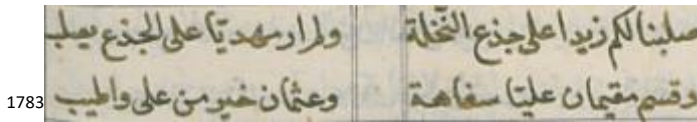 صلبنا لكم زيدا على جذع النّخلة ولم ار مهديّا على الجذع يصلب
وقسم مقيمان عليّا سفاهة وعثمان خير من على واطيب
1783